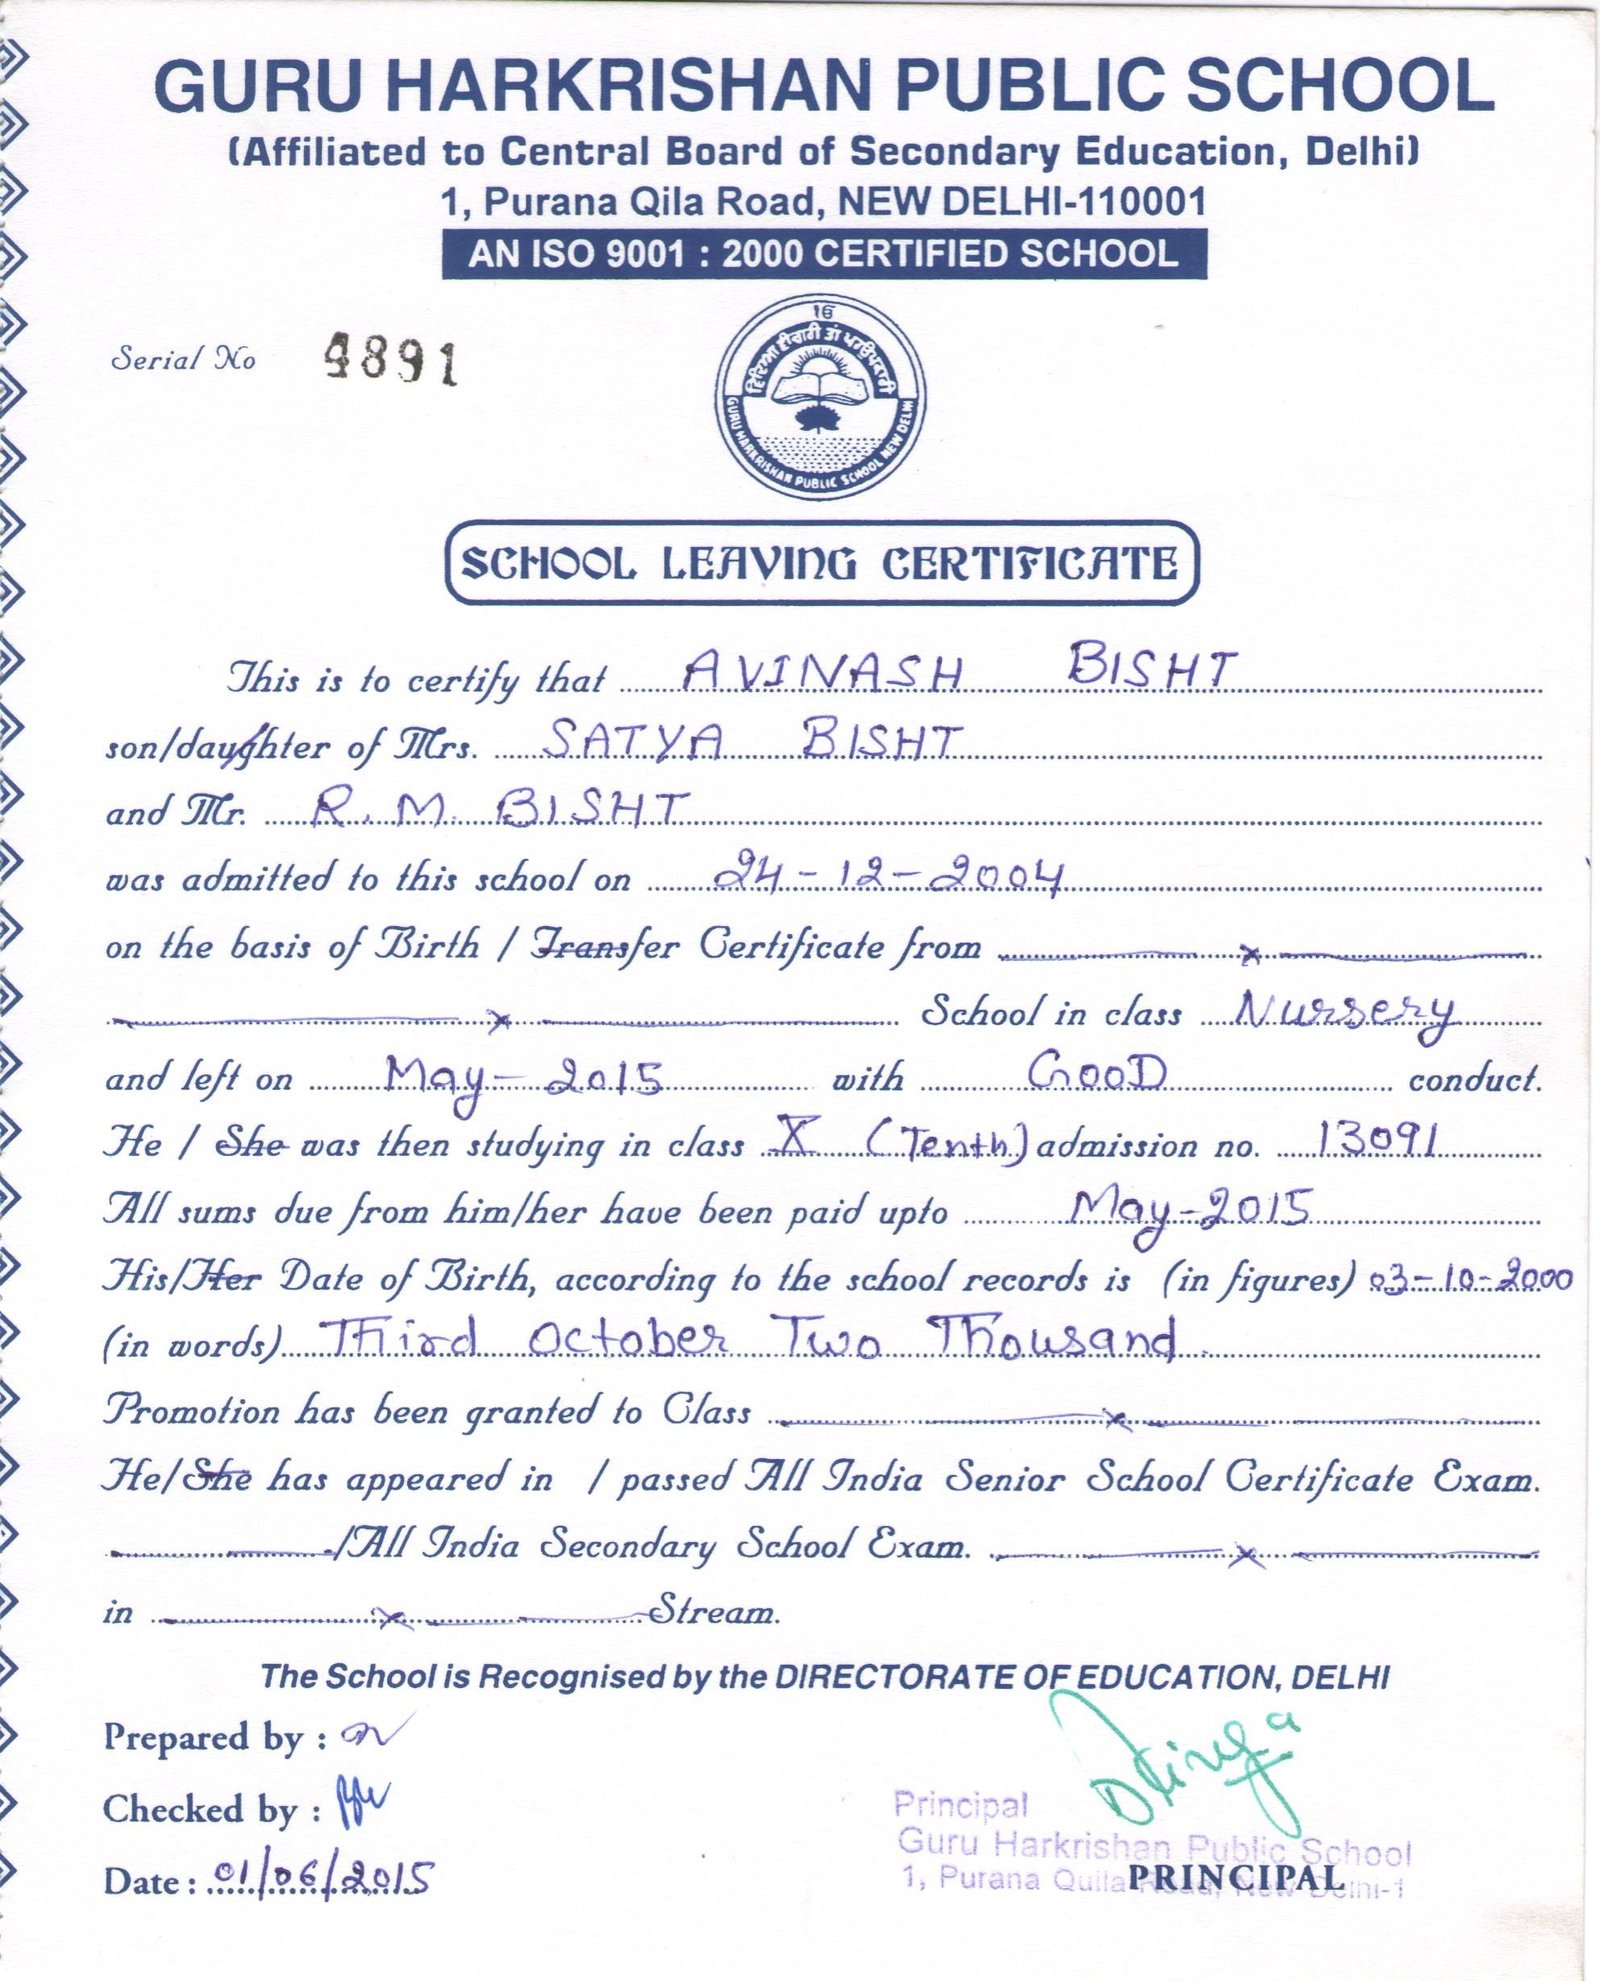 GURU HARKRISHAN PUBLIC SCHOOL
(Affiliated to Central Board of Secondary Education, Delhi)
1, Purana Qila Road, NEW DELHI-110001
AN ISO 9001 : 2000 CERTIFIED SCHOOL
Serial No 4891
੧ਓ
ਵਿਦਿਆ ਵੀਚਾਰੀ ਤਾਂ ਪਰਉਪਕਾਰੀ
GURU HARKRISHAN PUBLIC SCHOOL NEW DELHI
SCHOOL LEAVING CERTIFICATE
This is to certify that AVINASH BISHT
son/daughter of Mrs. SATYA BISHT
and Mr. R. M. BISHT
was admitted to this school on 24-12-2004
on the basis of Birth / Transfer Certificate from x
x School in class Nursery
and left on May-2015 with GOOD conduct.
He / She was then studying in class X (Tenth) admission no. 13091
All sums due from him/her have been paid upto May-2015
His/Her Date of Birth, according to the school records is (in figures) 03-10-2000
(in words) Third October Two Thousand
Promotion has been granted to Class x
He/She has appeared in / passed All India Senior School Certificate Exam.
/All India Secondary School Exam. x
in x Stream.
The School is Recognised by the DIRECTORATE OF EDUCATION, DELHI
Prepared by :
Checked by :
Principal
Guru Harkrishan Public School
1, Purana Quila Road, New Delhi-1
Date : 01/06/2015
PRINCIPAL